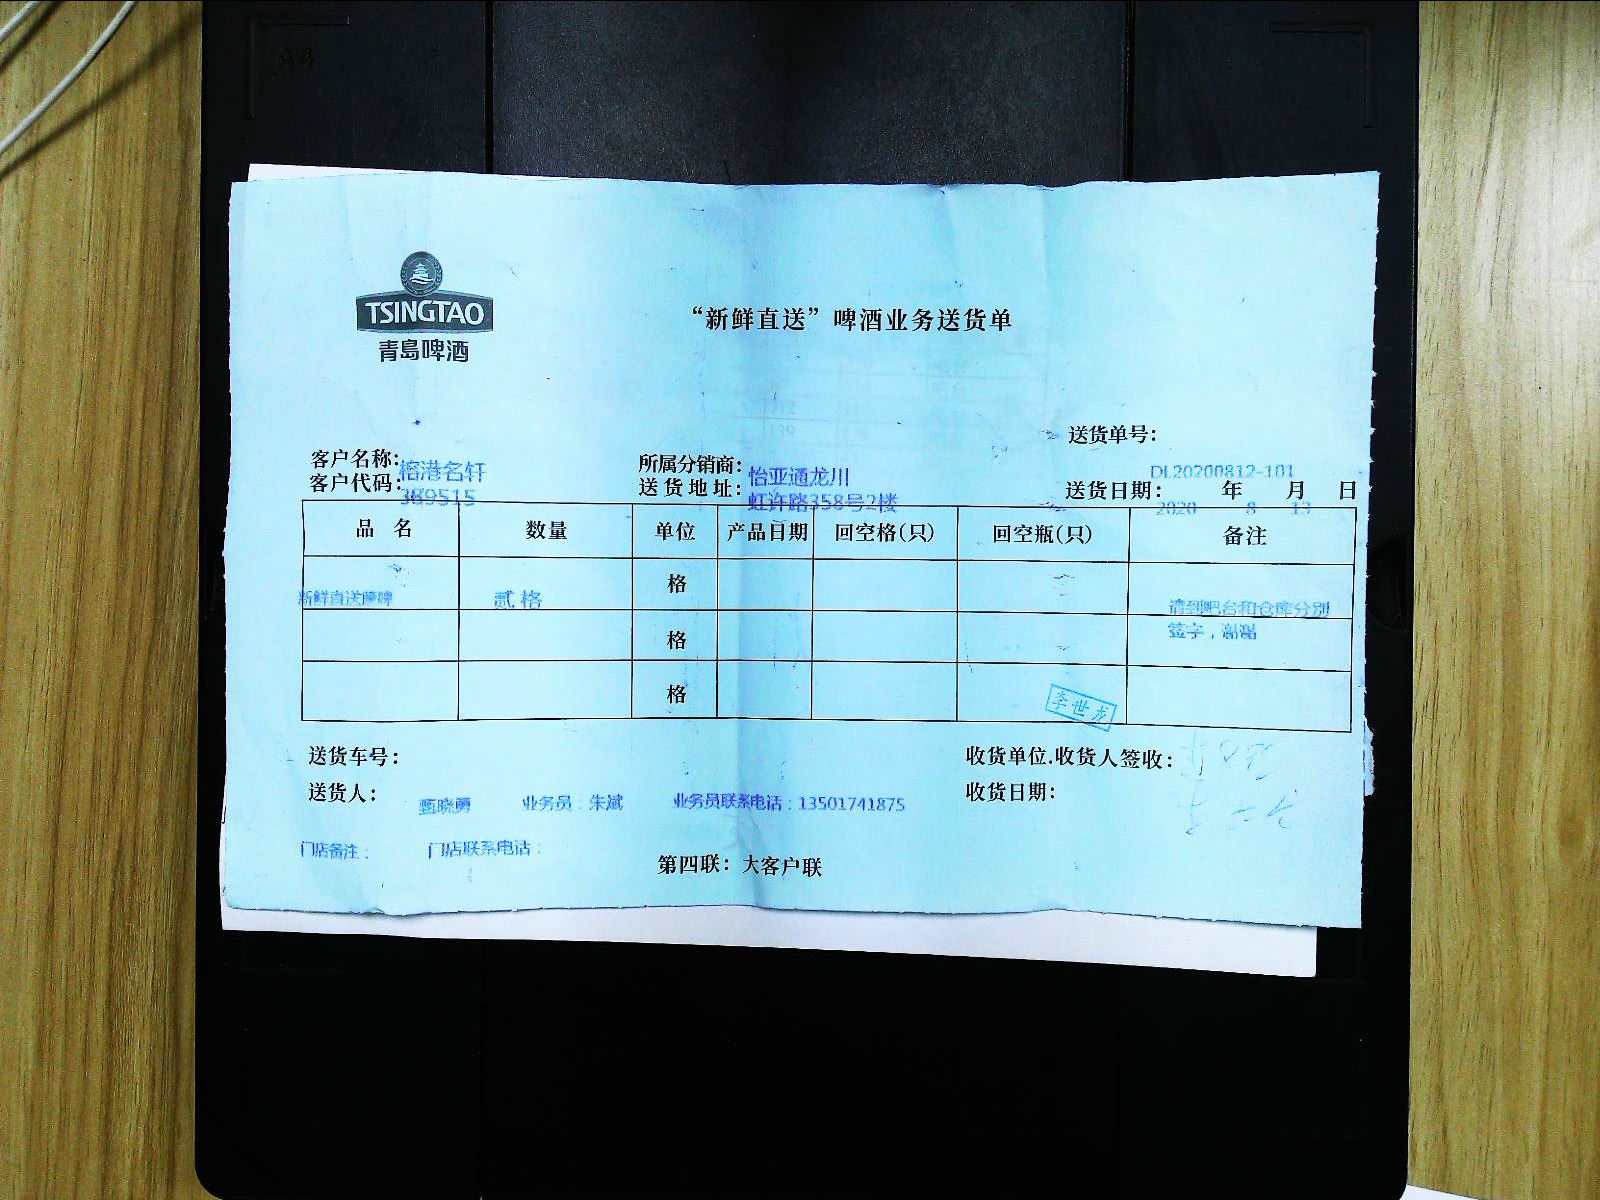 TSINGTAO
青岛啤酒
“新鲜直送”啤酒业务送货单
送货单号：
DL20200812-101
客户名称：榕港名轩
所属分销商：怡亚通龙川
客户代码：369515
送货地址：虹许路358号2楼
送货日期： 年 月 日
2020 8 13
品名 数量 单位 产品日期 回空格(只) 回空瓶(只) 备注
新鲜直送 贰格 格 请到吧台和仓库分别
签字，谢谢
格
格
李世龙
送货车号：
收货单位.收货人签收：
送货人： 甄晓勇 业务员：朱斌 业务员联系电话：13501741875
收货日期：
门店备注： 门店联系电话：
第四联：大客户联